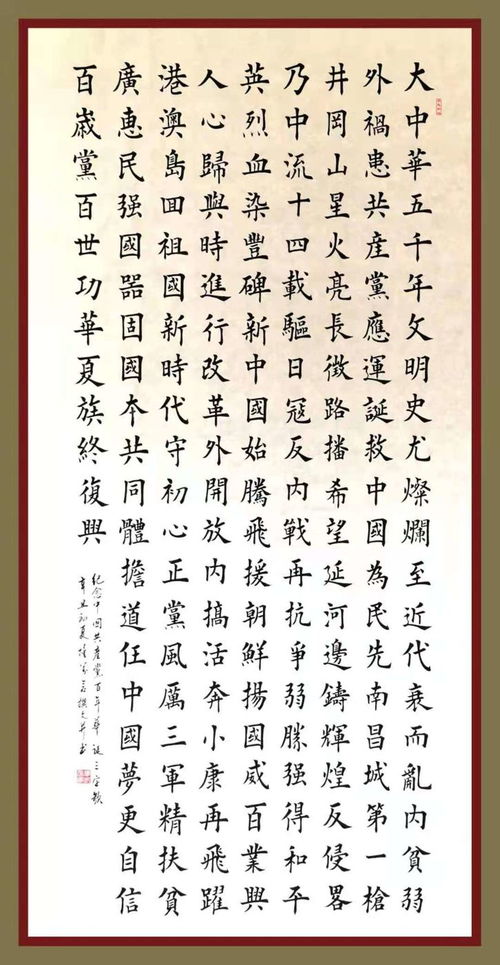 大中華五千年文明史尤燦爛至近代衰而亂内貧弱
外禍患共産黨應運誕救中國為民先南昌城第一槍
井岡山星火亮長徵路播希望延河邊鑄輝煌反侵畧
乃中流十四載驅日冦反内戰再抗爭弱勝强得和平
英烈血染豐碑新中國始騰飛援朝鮮揚國威百業興
人心歸與時進行改革外開放内搞活奔小康再飛躍
港澳島回祖國新時代守初心正黨風厲三軍精扶貧
廣惠民强國器固國本共同體擔道任中國夢更自信
百歲黨百世功華夏族終復興
紀念中國共産黨百年華誕三字頌
辛丑初夏撰文并书